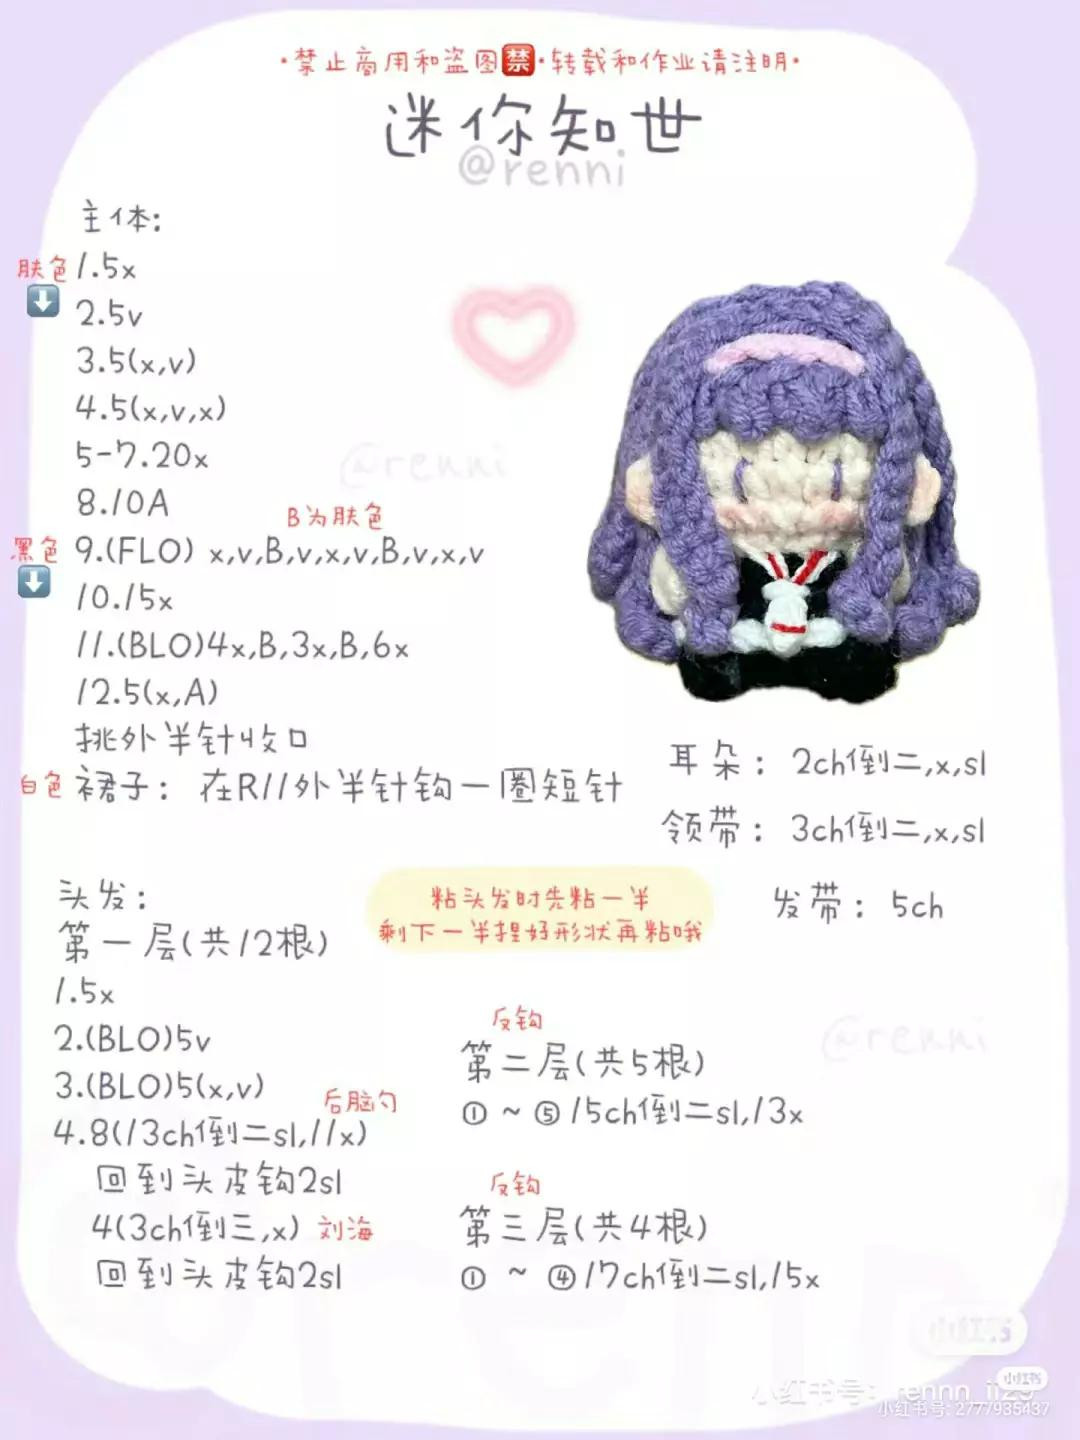 ·禁止商用和盗图🈲·转载和作业请注明·
迷你知世
@renni
主体:
肤色 1.5x
⬇️
2.5v
3.5(x,v)
4.5(x,v,x)
5-7.20x
@renni
8.10A
B为肤色
黑色 9.(FLO) x,v,B,v,x,v,B,v,x,v
⬇️
10.15x
11.(BLO)4x,B,3x,B,6x
12.5(x,A)
挑外半针收口
白色 裙子: 在R11外半针钩一圈短针
耳朵: 2ch倒二,x,sl
领带: 3ch倒二,x,sl
发带: 5ch
头发:
第一层(共12根)
粘头发时先粘一半
剩下一半捏好形状再粘哦
1.5x
2.(BLO)5v
3.(BLO)5(x,v)
后脑勺
4.8(13ch倒二sl,11x)
回到头皮钩2sl
4(3ch倒三,x) 刘海
回到头皮钩2sl
反钩
第二层(共5根)
① ~ ⑤ 15ch倒二sl,13x
@renni
反钩
第三层(共4根)
① ~ ④ 17ch倒二sl,15x
小红书
小红书
小红书号:
小红书号: 2777935437